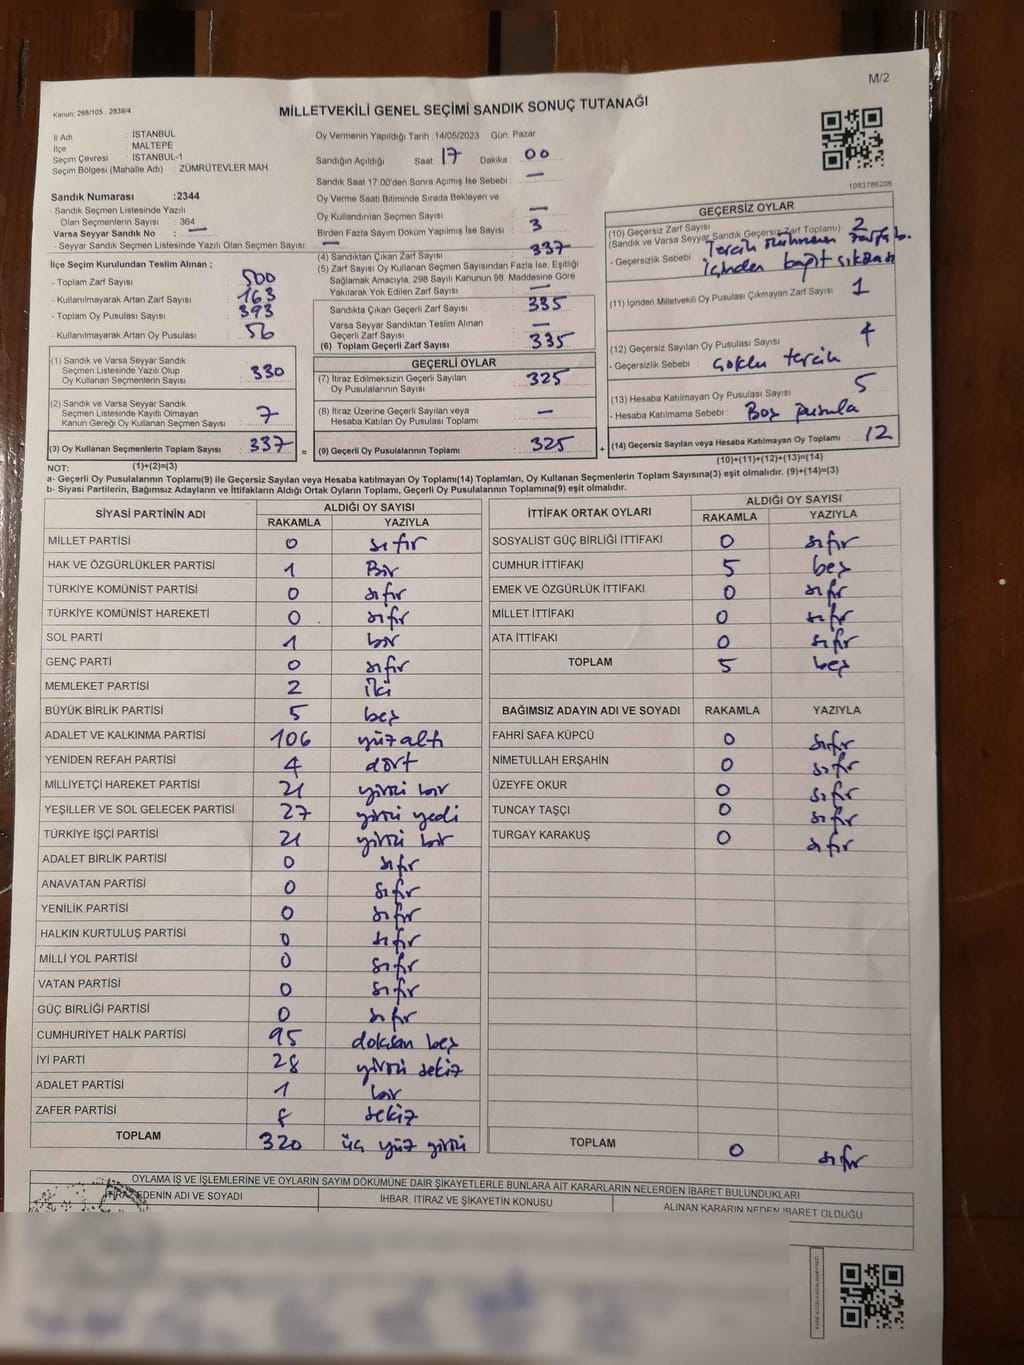 M/2
Kanun: 298/105 , 2839/4
MİLLETVEKİLİ GENEL SEÇİMİ SANDIK SONUÇ TUTANAĞI
İl Adı : İSTANBUL
İlçe : MALTEPE
Seçim Çevresi : İSTANBUL-1
Seçim Bölgesi (Mahalle Adı) : ZÜMRÜTEVLER MAH.
Sandık Numarası :2344
- Sandık Seçmen Listesinde Yazılı
Olan Seçmenlerin Sayısı : 364
Varsa Seyyar Sandık No : —
- Seyyar Sandık Seçmen Listesinde Yazılı Olan Seçmen Sayısı: —
Oy Vermenin Yapıldığı Tarih :14/05/2023 Gün: Pazar
Sandığın Açıldığı Saat: 17 Dakika : 00
Sandık Saat 17:00'den Sonra Açımış İse Sebebi : —
Oy Verme Saati Bitiminde Sırada Bekleyen ve
Oy Kullandırılan Seçmen Sayısı : —
Birden Fazla Sayım Döküm Yapılmış İse Sayısı : 3
1083786206
İlçe Seçim Kurulundan Teslim Alınan ;
- Toplam Zarf Sayısı : 500
- Kullanılmayarak Artan Zarf Sayısı : 163
- Toplam Oy Pusulası Sayısı : 393
- Kullanılmayarak Artan Oy Pusulası : 56
(1) Sandık ve Varsa Seyyar Sandık
Seçmen Listesinde Yazılı Olup
Oy Kullanan Seçmenlerin Sayısı : 330
(2) Sandık ve Varsa Seyyar Sandık
Seçmen Listesinde Kayıtlı Olmayan
Kanun Gereği Oy Kullanan Seçmen Sayısı : 7
(3) Oy Kullanan Seçmenlerin Toplam Sayısı : 337
(1)+(2)=(3)
(4) Sandıktan Çıkan Zarf Sayısı : 337
(5) Zarf Sayısı Oy Kullanan Seçmen Sayısından Fazla İse, Eşitliği
Sağlamak Amacıyla, 298 Sayılı Kanunun 98. Maddesine Göre
Yakılarak Yok Edilen Zarf Sayısı : —
Sandıkta Çıkan Geçerli Zarf Sayısı : 335
Varsa Seyyar Sandıktan Teslim Alınan
Geçerli Zarf Sayısı : —
(6) Toplam Geçerli Zarf Sayısı : 335
GEÇERLİ OYLAR
(7) İtiraz Edilmeksizin Geçerli Sayılan
Oy Pusulalarının Sayısı : 325
(8) İtiraz Üzerine Geçerli Sayılan veya
Hesaba Katılan Oy Pusulası Toplamı : —
= (9) Geçerli Oy Pusulalarının Toplamı : 325 +
GEÇERSİZ OYLAR
(10) Geçersiz Zarf Sayısı : 2
(Sandık ve Varsa Seyyar Sandık Geçersiz Zarf Toplamı)
- Geçersizlik Sebebi : Tercih mührünün zarfa b.
içinden kağıt çıkması
(11) İçinden Milletvekili Oy Pusulası Çıkmayan Zarf Sayısı : 1
(12) Geçersiz Sayılan Oy Pusulası Sayısı : 4
- Geçersizlik Sebebi : Çoklu tercih
(13) Hesaba Katılmayan Oy Pusulası Sayısı : 5
- Hesaba Katılmama Sebebi : Boş pusula
(14) Geçersiz Sayılan veya Hesaba Katılmayan Oy Toplamı : 12
(10)+(11)+(12)+(13)=(14)
NOT:
a- Geçerli Oy Pusulalarının Toplamı(9) ile Geçersiz Sayılan veya Hesaba Katılmayan Oy Toplamı(14) Toplamları, Oy Kullanan Seçmenlerin Toplam Sayısına(3) eşit olmalıdır. (9)+(14)=(3)
b- Siyasi Partilerin, Bağımsız Adayların ve İttifakların Aldığı Ortak Oyların Toplamı, Geçerli Oy Pusulalarının Toplamına(9) eşit olmalıdır.
SİYASİ PARTİNİN ADI ALDIĞI OY SAYISI
RAKAMLA YAZIYLA
MİLLET PARTİSİ 0 sıfır
HAK VE ÖZGÜRLÜKLER PARTİSİ 1 Bir
TÜRKİYE KOMÜNİST PARTİSİ 0 sıfır
TÜRKİYE KOMÜNİST HAREKETİ 0 sıfır
SOL PARTİ 1 bir
GENÇ PARTİ 0 sıfır
MEMLEKET PARTİSİ 2 iki
BÜYÜK BİRLİK PARTİSİ 5 beş
ADALET VE KALKINMA PARTİSİ 106 yüz altı
YENİDEN REFAH PARTİSİ 4 dört
MİLLİYETÇİ HAREKET PARTİSİ 21 yirmi bir
YEŞİLLER VE SOL GELECEK PARTİSİ 27 yirmi yedi
TÜRKİYE İŞÇİ PARTİSİ 21 yirmi bir
ADALET BİRLİK PARTİSİ 0 sıfır
ANAVATAN PARTİSİ 0 sıfır
YENİLİK PARTİSİ 0 sıfır
HALKIN KURTULUŞ PARTİSİ 0 sıfır
MİLLİ YOL PARTİSİ 0 sıfır
VATAN PARTİSİ 0 sıfır
GÜÇ BİRLİĞİ PARTİSİ 0 sıfır
CUMHURİYET HALK PARTİSİ 95 doksan beş
İYİ PARTİ 28 yirmi sekiz
ADALET PARTİSİ 1 bir
ZAFER PARTİSİ 8 sekiz
TOPLAM 320 üç yüz yirmi
İTTİFAK ORTAK OYLARI ALDIĞI OY SAYISI
RAKAMLA YAZIYLA
SOSYALİST GÜÇ BİRLİĞİ İTTİFAKI 0 sıfır
CUMHUR İTTİFAKI 5 beş
EMEK VE ÖZGÜRLÜK İTTİFAKI 0 sıfır
MİLLET İTTİFAKI 0 sıfır
ATA İTTİFAKI 0 sıfır
TOPLAM 5 beş
BAĞIMSIZ ADAYIN ADI VE SOYADI RAKAMLA YAZIYLA
FAHRİ SAFA KÜPCÜ 0 sıfır
NİMETULLAH ERŞAHİN 0 sıfır
ÜZEYFE OKUR 0 sıfır
TUNCAY TAŞÇI 0 sıfır
TURGAY KARAKUŞ 0 sıfır
TOPLAM 0 sıfır
OYLAMA İŞ VE İŞLEMLERİNE VE OYLARIN SAYIM DÖKÜMÜNE DAİR ŞİKAYETLERLE BUNLARA AİT KARARLARIN NELERDEN İBARET BULUNDUKLARI
İTİRAZ EDENİN ADI VE SOYADI İHBAR, İTİRAZ VE ŞİKAYETİN KONUSU ALINAN KARARIN NEDEN İBARET OLDUĞU